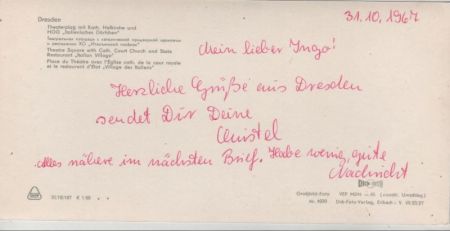 Dresden
Theaterplatz mit Kath. Hofkirche und
HOG „Italienisches Dörfchen“
Театральная площадь с католической придворной церковью
и рестораном ХО „Итальянская
Theatre Square with Cath. Court Church and State
Restaurant „Italian Village“
Place du Théâtre avec l'Eglise cath. de la cour royale
et le restaurant d'Etat „Village des Italiens“
31.10.1967
Mein lieber Ingo!
Herzliche Grüße aus Dresden
sendet Dir Deine
Christel
Alles nähere im nächsten Brief. Habe wenig gute
Nachricht